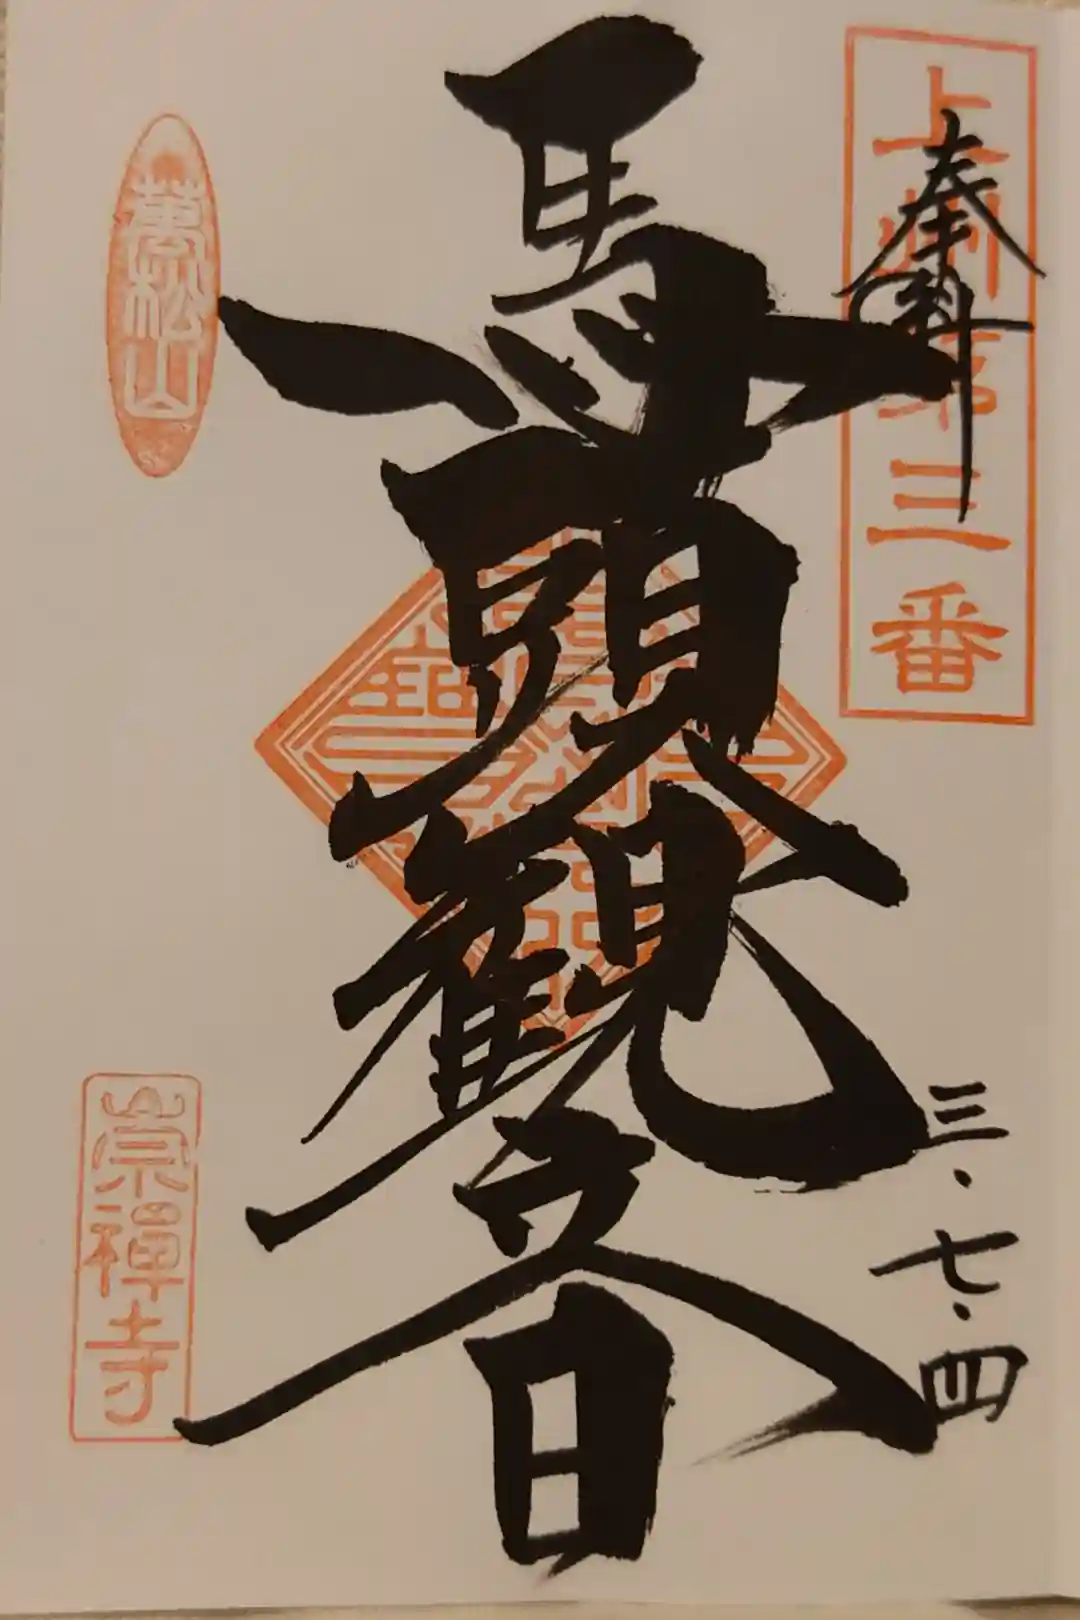 奉拝
上州第三番
三・七・四
馬頭観音
萬松山
崇禅寺